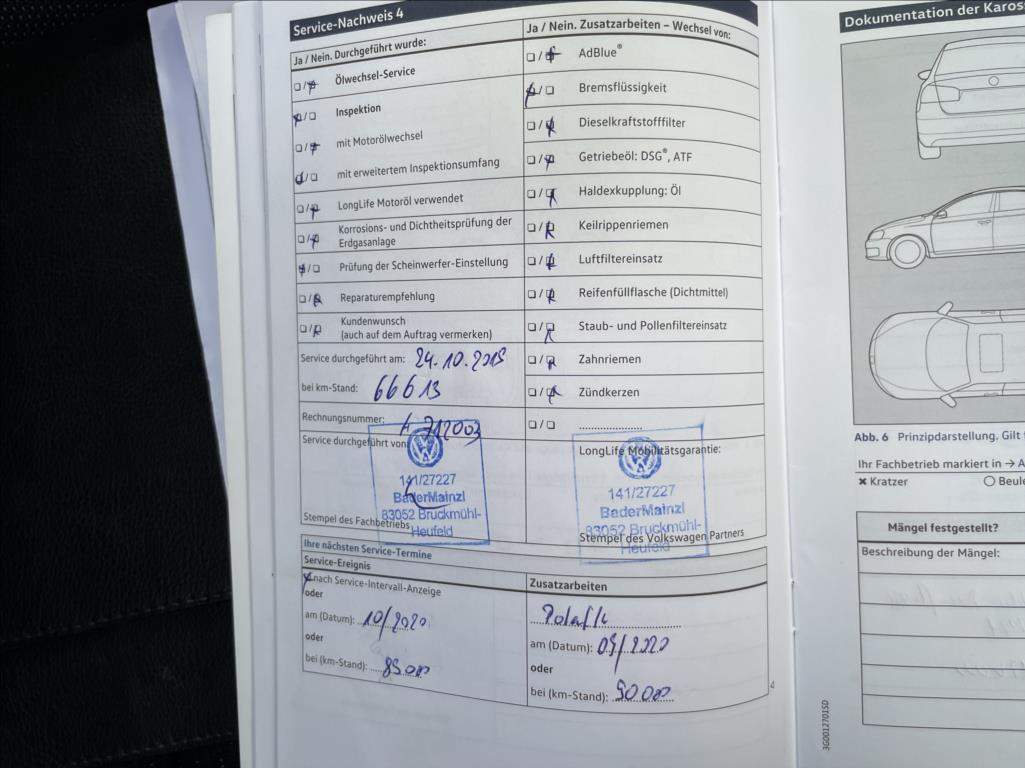 Service-Nachweis 4
Ja / Nein. Durchgeführt wurde:
Ölwechsel-Service
Inspektion
mit Motorölwechsel
mit erweitertem Inspektionsumfang
LongLife Motoröl verwendet
Korrosions- und Dichtheitsprüfung der
Erdgasanlage
Prüfung der Scheinwerfer-Einstellung
Reparaturempfehlung
Kundenwunsch
(auch auf dem Auftrag vermerken)
Service durchgeführt am: 24.10.2019
bei km-Stand: 66613
Rechnungsnummer: 712003
Service durchgeführt von:
141/27227
BaderMainzl
83052 Bruckmühl-
Heufeld
Stempel des Fachbetriebs
Ja / Nein. Zusatzarbeiten – Wechsel von:
AdBlue®
Bremsflüssigkeit
Dieselkraftstofffilter
Getriebeöl: DSG®, ATF
Haldexkupplung: Öl
Keilrippenriemen
Luftfiltereinsatz
Reifenfüllflasche (Dichtmittel)
Staub- und Pollenfiltereinsatz
Zahnriemen
Zündkerzen
LongLife Mobilitätsgarantie:
141/27227
BaderMainzl
83052 Bruckmühl-
Heufeld
Stempel des Volkswagen Partners
Ihre nächsten Service-Termine
Service-Ereignis
nach Service-Intervall-Anzeige
oder
am (Datum): 10/2020
oder
bei (km-Stand):
Zusatzarbeiten
am (Datum): 09/2020
oder
bei (km-Stand):
4
Dokumentation der Karos
Abb. 6 Prinzipdarstellung. Gilt
Ihr Fachbetrieb markiert in → A
✖ Kratzer
○ Beule
Mängel festgestellt?
Beschreibung der Mängel:
3G0012701SD